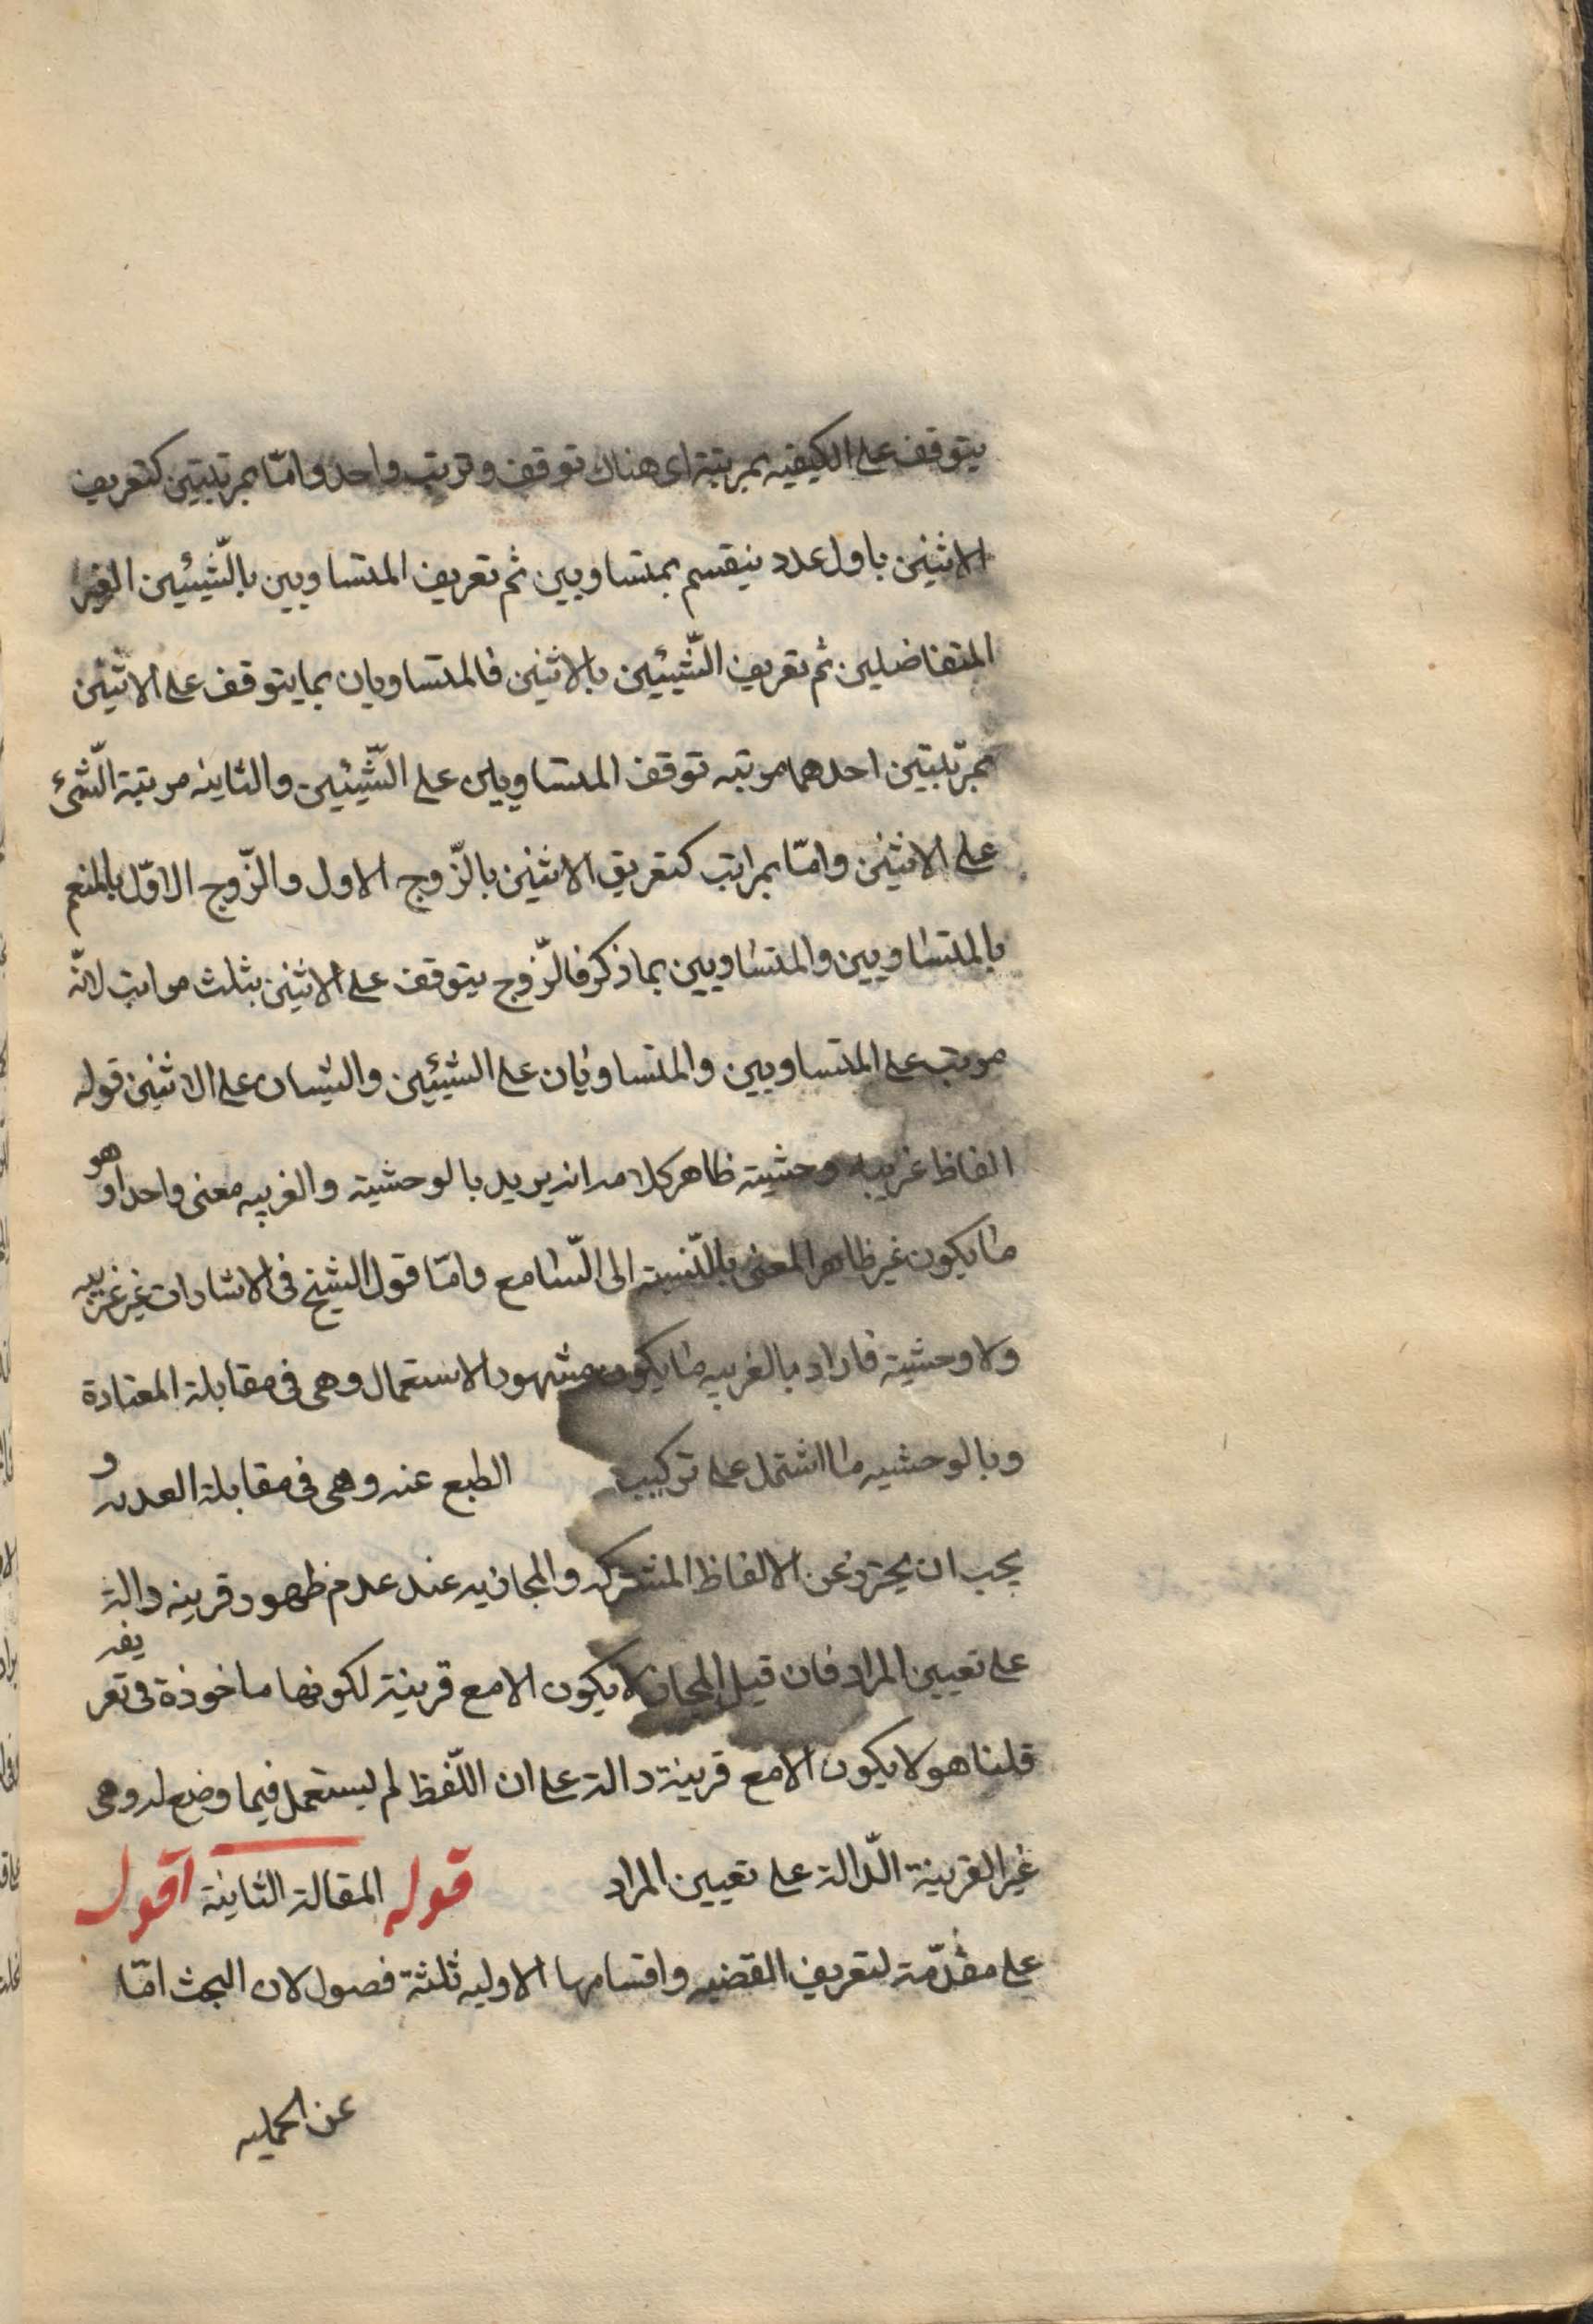 يتوقف على الكيفيه بمرتبة اى هناك توقف وترتب واحد وامّا بمرتبتين كتعريف
الاثنين باول عدد ينقسم بمتساويين ثم تعريف المتساويين بالشّيئين الغير
المتفاضلين ثم تعريف الشّيئين بالاثنين فالمتساويان بما يتوقف على الاثنين
بمرتبتين احدهما مرتبه توقف المتساويين على الشّيئين والثانيه مرتبة الشّئ
على الاثنين وامّا بمراتب كتعريف الاثنين بالزّوج الاول والزّوج الاوّل بالمنقسم
بالمتساويين والمتساويين بما ذكر فالزّوج يتوقف على الاثنين بثلث مراتب لانّه
مرتب على المتساويين والمتساويان على الشيئين والشيئان على الاثنين قوله
الفاظ غريبه وحشية ظاهر كلامه انه يريد بالوحشية والغريبه معنى واحدا وهو
ما يكون غير ظاهر المعنى بالنّسبة الى السّامع وامّا قول الشيخ فى الاشارات غير غريبه
ولا وحشية فاراد بالغريبه ما يكون مشهور الاستعمال وهى فى مقابلة المعتادة
وبالوحشيه ما اشتمل على تركيب الطبع عنه وهى فى مقابلة العذبه و
يجب ان يحترز عن الالفاظ المشتركه والمجازيه عند عدم ظهور قرينه دالة
على تعيين المراد فان قيل المجاز لا يكون الا مع قرينة لكونها ماخوذة فى تعريفه
قلنا هو لا يكون الا مع قرينة دالة على ان اللّفظ لم يستعمل فيما وضع له وهى
غير القرينة الدّالة على تعيين المراد قوله المقالة الثانية اقول
على مقدّمة لتعريف القضيه واقسامها الاوليه ثلثة فصول لان البحث امّا
عن الحمليه